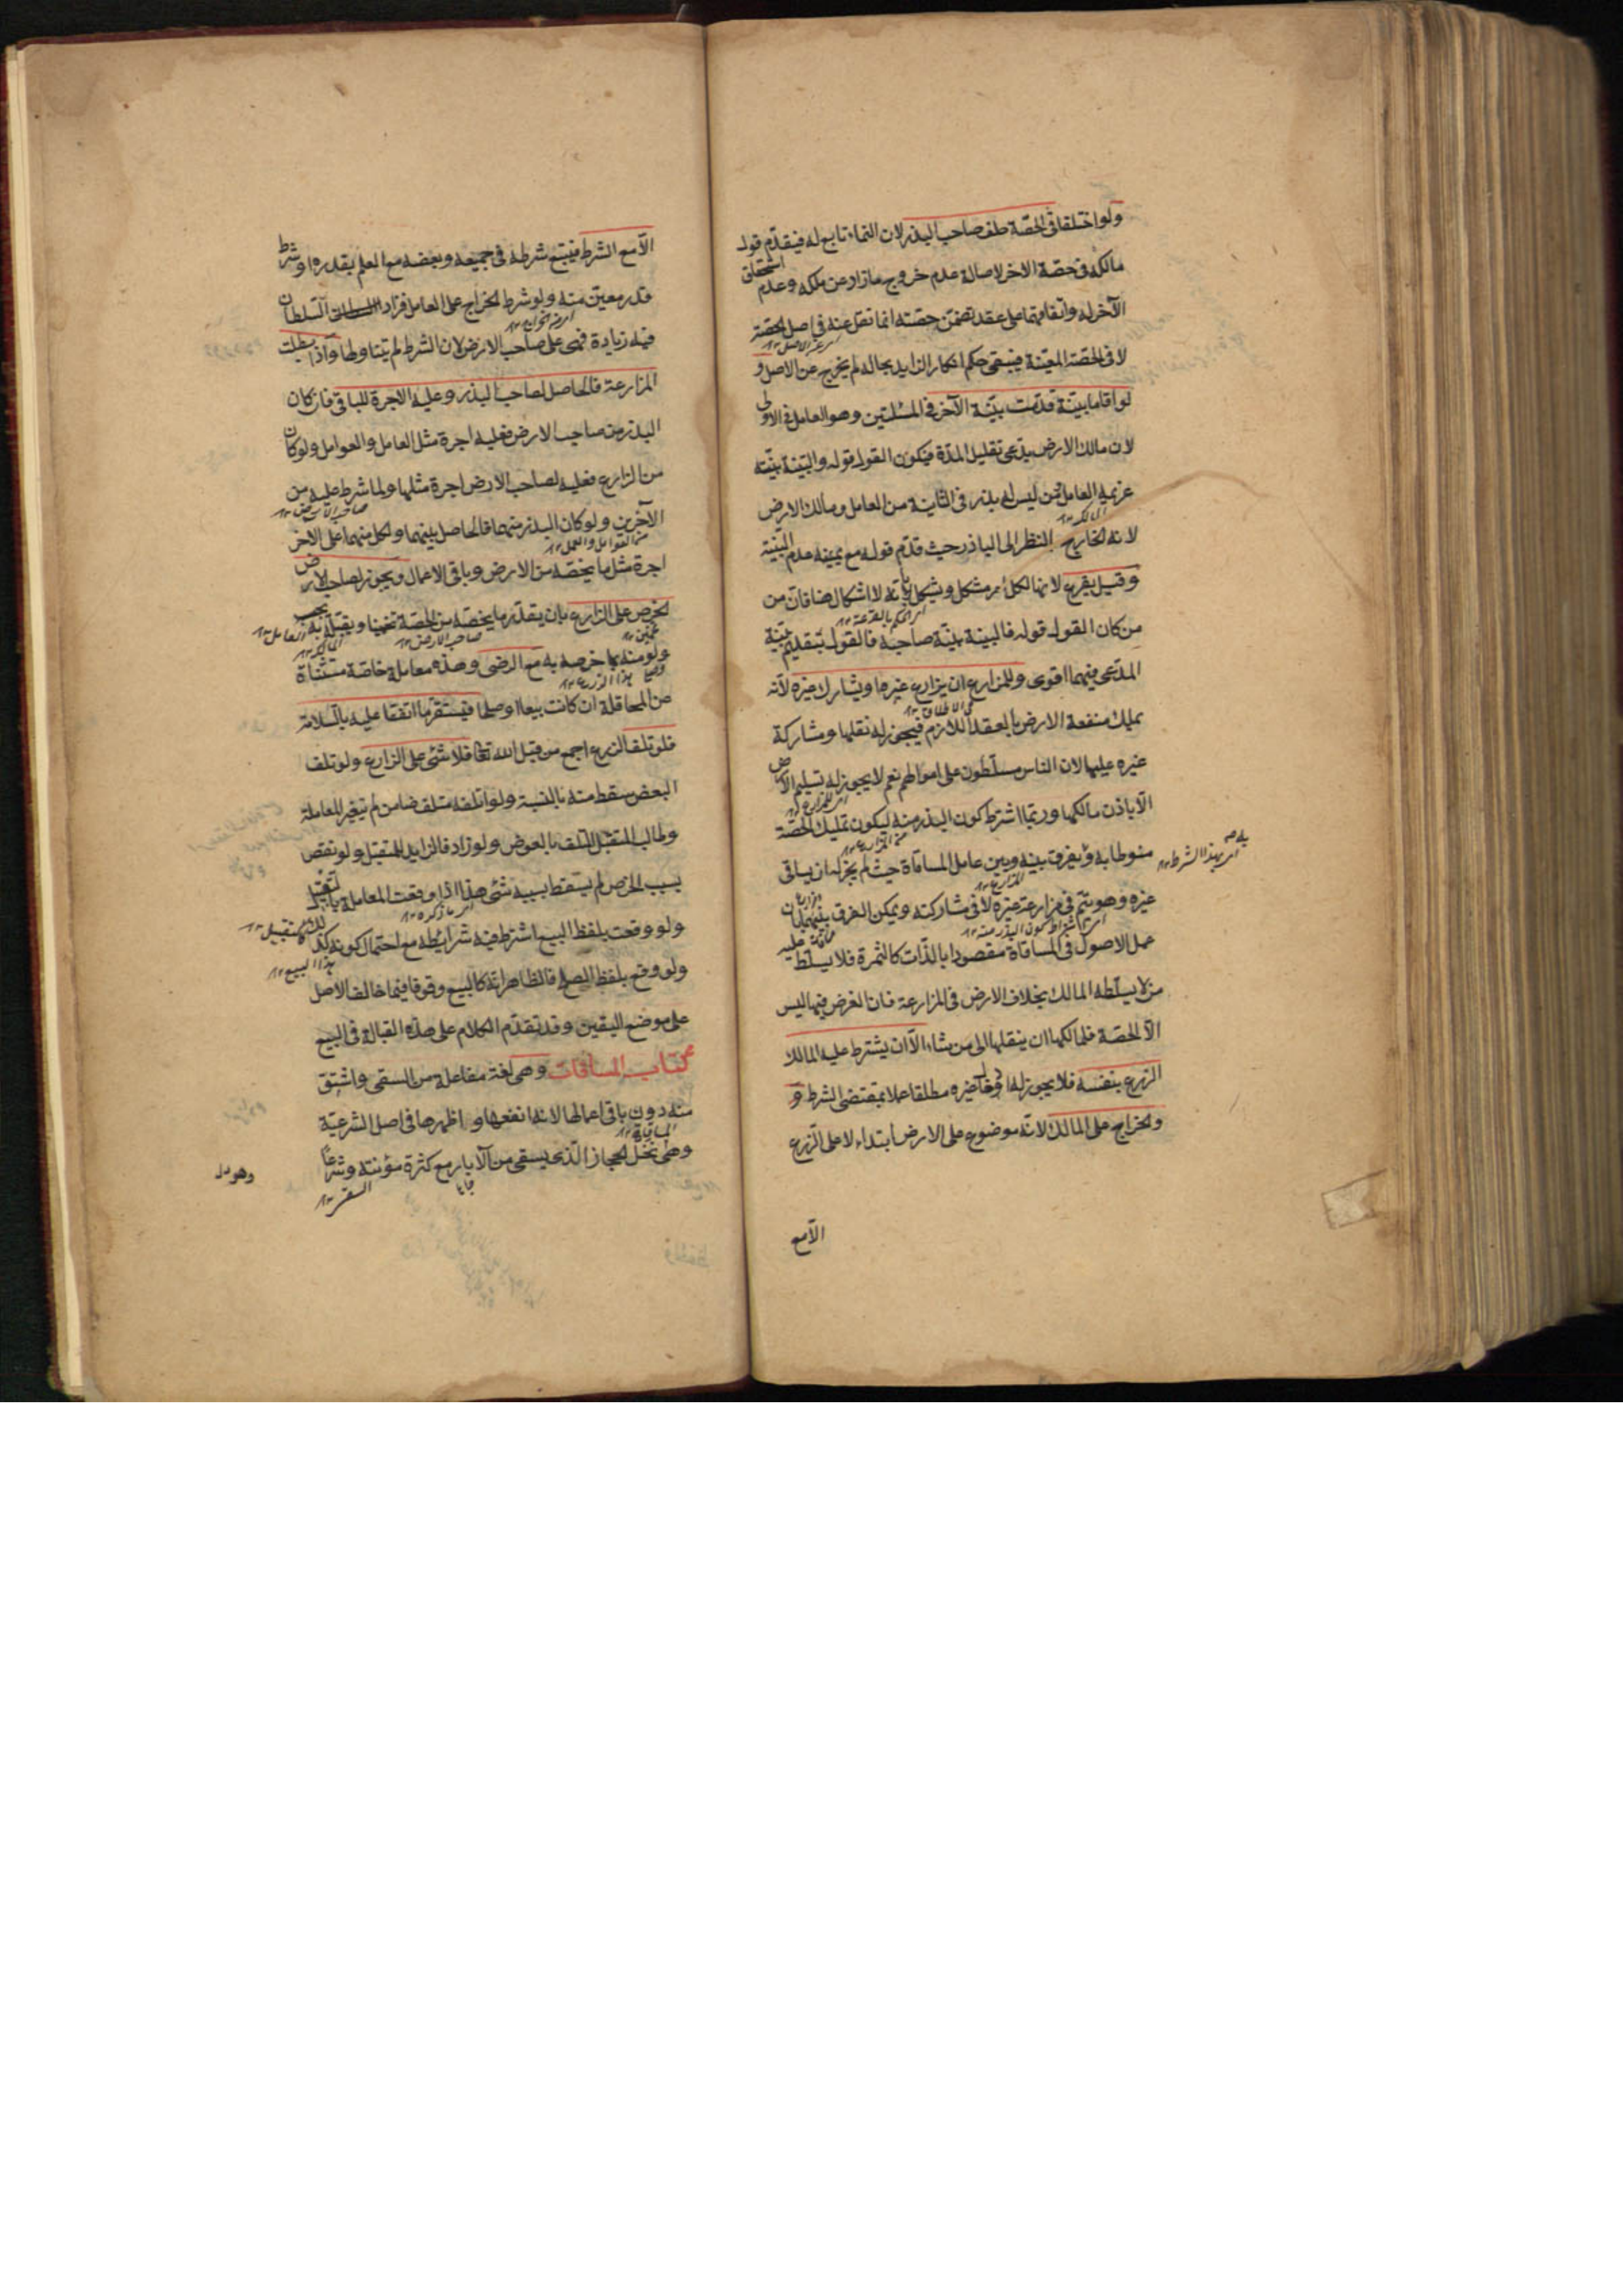 ولو اختلفا فى الحصة حلف صاحب البذر لان النماء تابع له فيقدم قول
مالكه فى حصة الاخر لاصالة عدم خروج ما زاد عن ملكه وعدم استحقاق
الآخر له واتفاقهما على عقد تضمن حصته انما نقل عنه فى اصل الحصة
لا فى الحصة المعينة فيبقى حكم انكار الزايد بحاله لم يخرج عن الاصل و
لو اقاما بينة قدمت بينة الآخر فى المسئلتين وهو العامل فى الاولى
لان مالك الارض يدعى تقليل المدة فيكون القول قوله والبينة بينة
غريمه العامل ومن ليس له بذر فى الثانية من العامل ومالك الارض
لانه الخارج بالنظر الى الباذر حيث قدم قوله مع يمينه عدم البينة
وقيل يقرع لانها لكل امر مشكل ويشكل بانه لا اشكال هنا فان من
من كان القول قوله فالبينة بينة صاحبه فالقول بتقديم بينة
المدعى فيهما اقوى وللمزارع ان يزارع غيره او يشارك غيره لانه
يملك منفعة الارض بالعقد اللازم فيجوز له نقلها ومشاركة
غيره عليها لان الناس مسلطون على اموالهم نعم لا يجوز له تسليم الارض
الا باذن مالكها وربما اشترط كون البذر منه ليكون تمليك الحصة
منوطا به وبه يفرق بينه وبين عامل المساقاة حيث لم يجز له ان يساقى
اى بهذا الشرط
غيره وهو يتم فى مزارعة غيره لا فى مشاركته ويمكن الفرق بينهما بان
عمل الاصول فى المساقاة مقصود بالذات كالثمرة فلا يسلط عليه
من لا يسلطه المالك بخلاف الارض فى المزارعة فان الغرض فيها ليس
الا الحصة فلمالكها ان ينقلها الى من شاء الا ان يشترط عليه المالك
الزرع بنفسه فلا يجوز له ادخال غيره مطلقا عملا بمقتضى الشرط و
والخراج على المالك لانه موضوع على الارض ابتداء لا على الزرع
الا مع
الا مع الشرط فيتبع شرطه فى جميعه وبعضه مع العلم بقدره او شرط
قدر معين منه ولو شرط الخراج على العامل فزاد السلطان
فيه زيادة فهى على صاحب الارض لان الشرط لم يتناولها واذا بطلت
المزارعة فالحاصل لصاحب البذر وعليه الاجرة للباقى فان كان
البذر من صاحب الارض فعليه اجرة مثل العامل والعوامل ولو كان
من الزارع فعليه لصاحب الارض اجرة مثلها ولما شرط عليه من
الآخرين ولو كان البذر منهما فالحاصل بينهما ولكل منهما على الاخر
اجرة مثل ما يخصه من الارض وباقى الاعمال ويجوز لصاحب الارض
الخرص على الزارع بان يقدر ما يخصه من الحصة تخمينا ويقبله به بحب
ولو منه بما خرصه به مع الرضى وهذه معاملة خاصة مستثناة
من المحاقلة ان كانت بيعا او صلحا فيستقر ما اتفقا عليه بالسلامة
فلو تلف الزرع اجمع من قبل الله تعالى فلا شئ على الزارع ولو تلف
البعض سقط منه بالنسبة ولو اتلفه متلف ضامن لم تتغير المعاملة
وطالب المتقبل المتلف بالعوض ولو زاد فالزايد للمتقبل ولو نقص
بسبب الخرص لم يسقط بسببه شئ هذا اذا وقعت المعاملة بالتقبيل
ولو وقعت بلفظ البيع اشترط فيه شرائطه مع احتمال كونه كذلك
ولو وقع بلفظ الصلح فالظاهر انه كالبيع وقوفا فيما خالف الاصل
على موضع اليقين وقد تقدم الكلام على هذه القبالة فى البيع
كتاب المساقات وهى لغة مفاعلة من السقى واشتق
منه دون باقى اعمالها لانه انفعها واظهرها فى اصل الشرعية
وهى نخل الحجاز الذى يسقى من الآبار مع كثرة مؤنته وشرعا